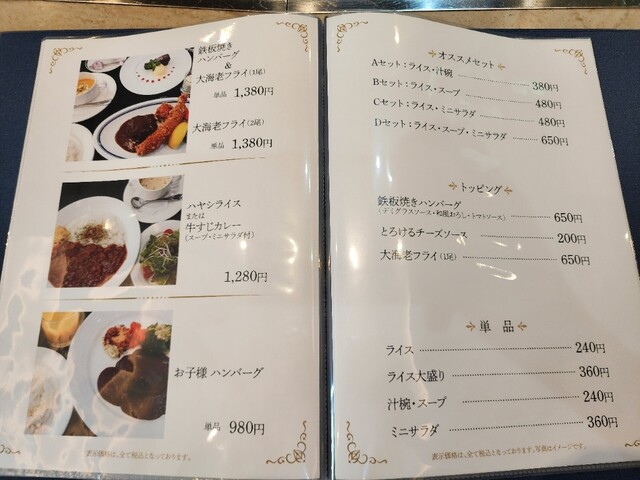 鉄板焼き
ハンバーグ
&
大海老フライ(1尾)
単品 1,380円
大海老フライ(2尾)
単品 1,380円
ハヤシライス
または
牛すじカレー
(スープ・ミニサラダ付)
1,280円
お子様 ハンバーグ
単品 980円
表示価格は、全て税込となっております。
オススメセット
Aセット:ライス・汁椀 380円
Bセット:ライス・スープ 480円
Cセット:ライス・ミニサラダ 480円
Dセット:ライス・スープ・ミニサラダ 650円
トッピング
鉄板焼きハンバーグ 650円
(デミグラスソース・和風おろし・トマトソース)
とろけるチーズソース 200円
大海老フライ(1尾) 650円
単品
ライス 240円
ライス大盛り 360円
汁椀・スープ 240円
ミニサラダ 360円
表示価格は、全て税込となっております。写真はイメージです。